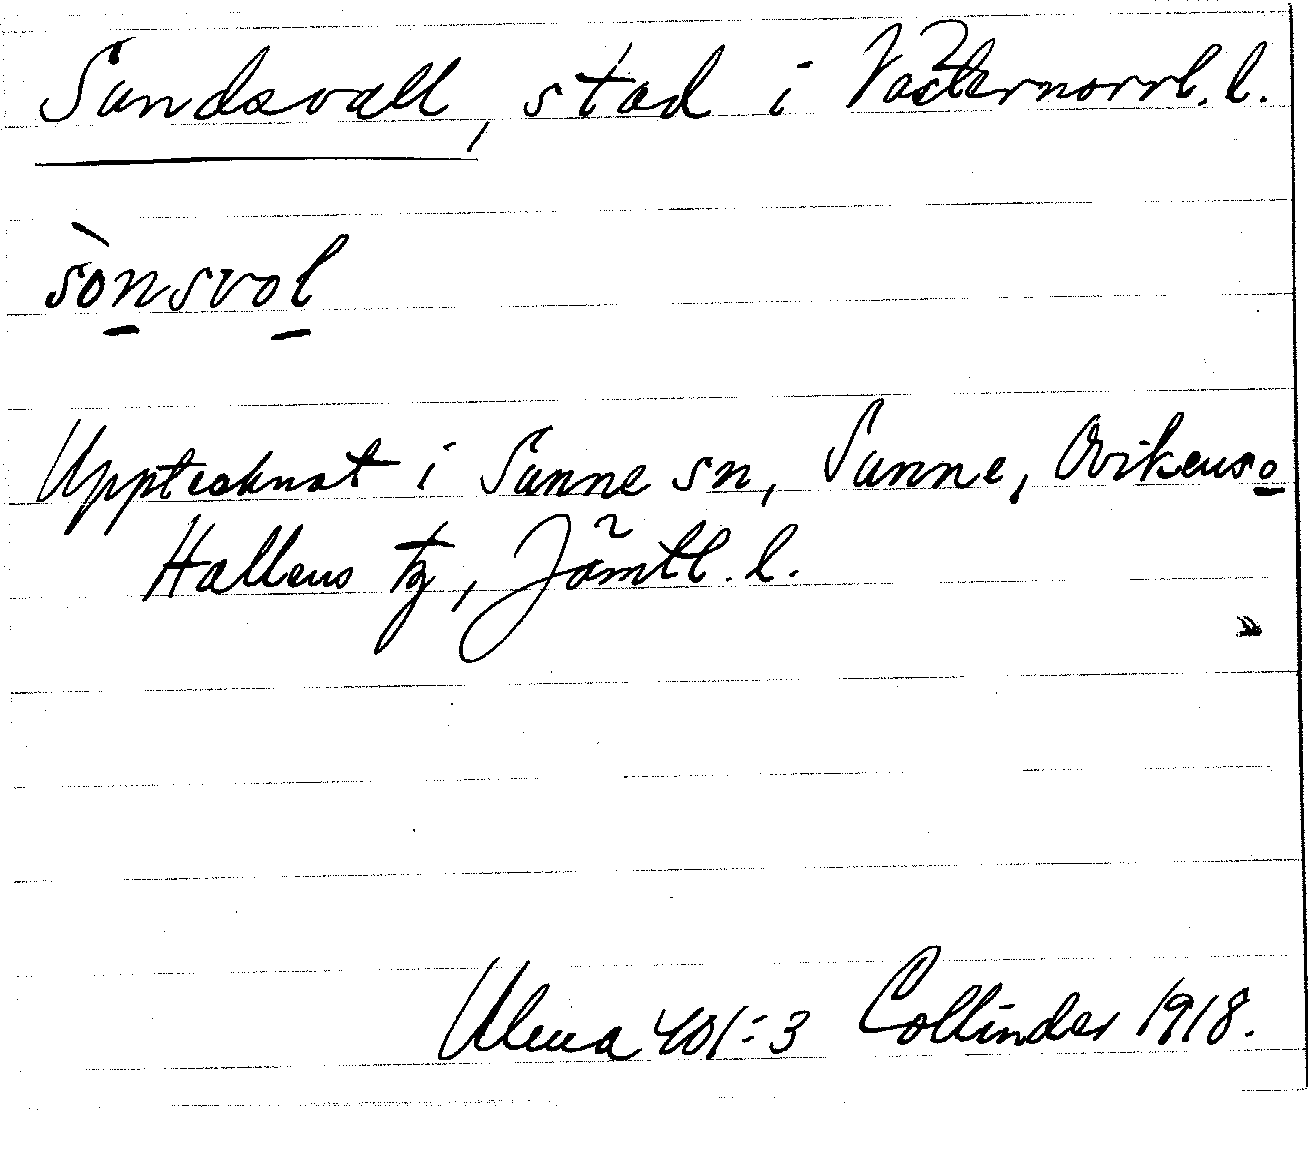 Sundsvall, stad i Västernorrl. l.
sònsvol
Upptecknat i Sunne sn, Sunne, Ovikens o
Hallens tg, Jämtl. l.
Ulma 401:3 Collinder 1918.